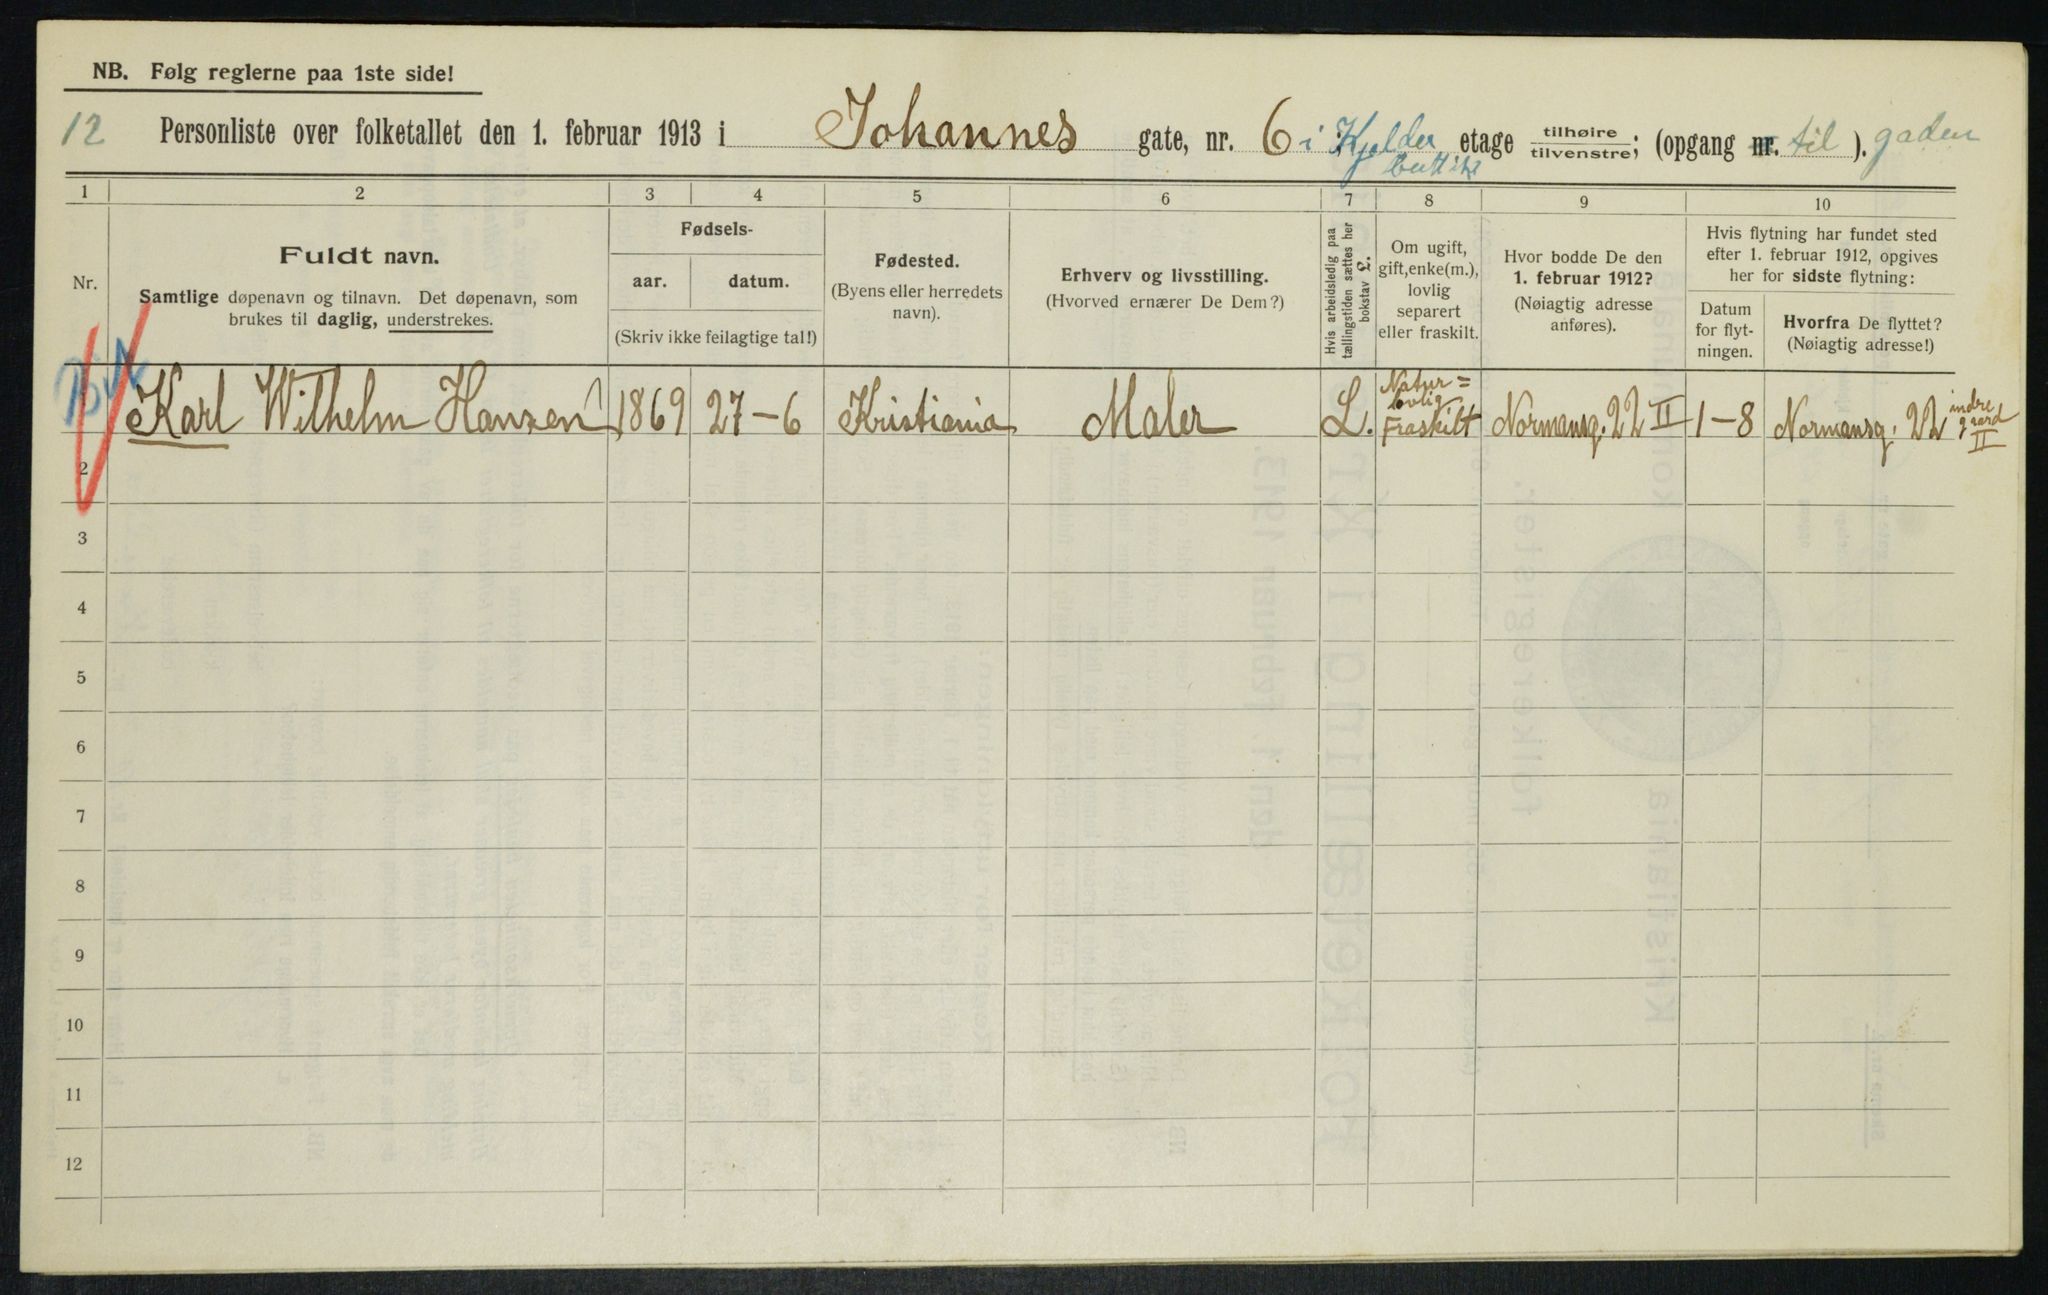 NB. Følg reglerne paa 1ste side!
12 Personliste over folketallet den 1. februar 1913 i Johannes gate, nr. 6 i Kjelder etage tilhøire/tilvenstre; (opgang nr. til ). gaden
butik
1 2 3 4 5 6 7 8 9 10
Nr.
Fuldt navn.
Samtlige døpenavn og tilnavn. Det døpenavn, som
brukes til daglig, understrekes.
Fødsels-
aar. datum.
(Skriv ikke feilagtige tal!)
Fødested.
(Byens eller herredets
navn).
Erhverv og livsstilling.
(Hvorved ernærer De Dem?)
Hvis arbeidsledig paa
tællingstiden sættes her
bokstav L.
Om ugift,
gift, enke(m.),
lovlig
separert
eller fraskilt.
Hvor bodde De den
1. februar 1912?
(Nøiagtig adresse
anføres).
Hvis flytning har fundet sted
efter 1. februar 1912, opgives
her for sidste flytning:
Datum
for flyt-
ningen.
Hvorfra De flyttet?
(Nøiagtig adresse!)
But Karl Wilhelm Hansen 1869 27-6 Kristiania Maler L. Natur=
lovlig
Fraskilt Normansg. 22 II 1-8 Normansg. 22 indre
gaard
II
2
3
4
5
6
7
8
9
10
11
12